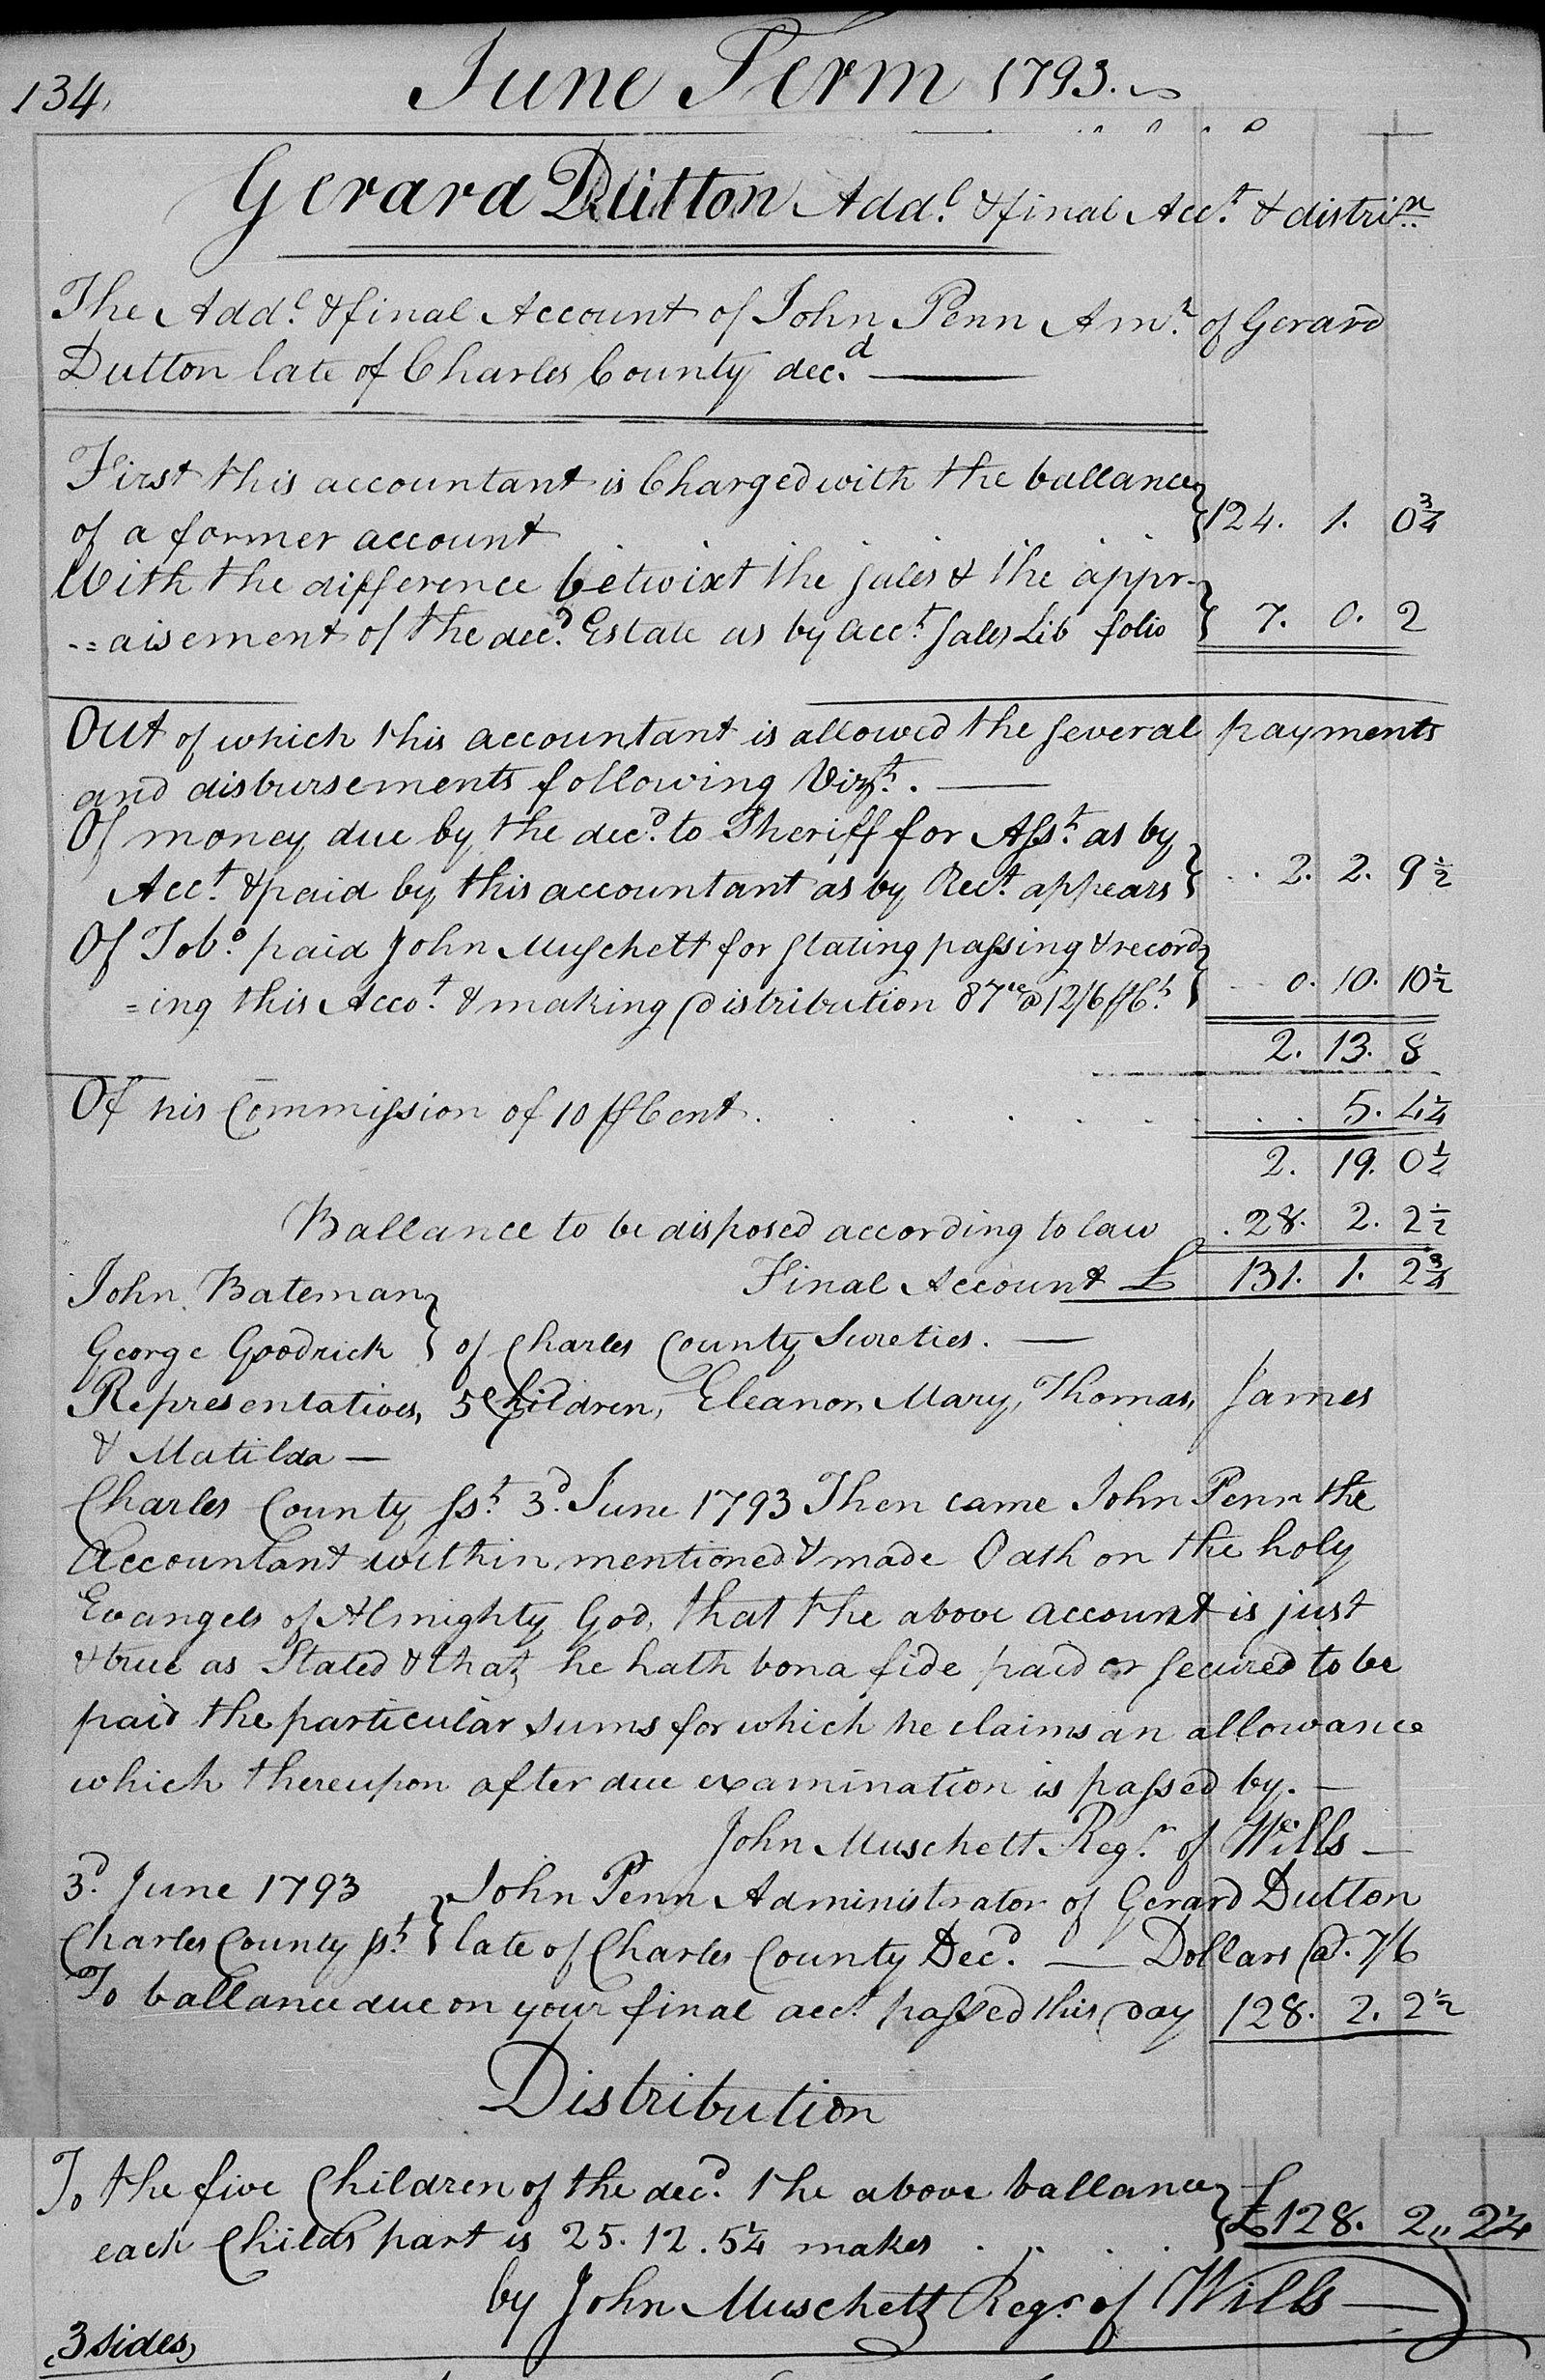 134. June Term 1793.
Gerard Dutton Add.l & final Acc.t & distri.n
The Add.l & final Account of John Penn Am.r of Gerard
Dutton late of Charles County dec.d —
First this accountant is Charged with the ballance
of a former account } 124. 1. 0¾
With the difference betwixt the sales & the appr-
-=aisement of the dec.d Estate as by acc.t Sales Lib folio } 7. 0. 2
Out of which this accountant is allowed the several payments
and disbursements following Viz.t. —
Of money due by the dec.d to Sheriff for Ass.t as by
Acc.t & paid by this accountant as by Rec.t appears } 2. 2. 9½
Of Tob.o paid John Muschett for stating passing & record
=ing this Acco.t & making distribution 87 @ 12/6 P C.t } 0. 10. 10½
2. 13. 8
Of his Commission of 10 P Cent . . . . . . 5. 4¼
2. 19. 0½
Ballance to be disposed according to law . 28. 2. 2½
Final Account £ 131. 1. 2¾
John Bateman }
George Goodrick } of Charles County Sureties. —
Representatives, 5 Children, Eleanor, Mary, Thomas, James
& Matilda —
Charles County ss.t 3.d June 1793 Then came John Penn the
Accountant within mentioned & made Oath on the holy
Evangels of Almighty God, that the above account is just
& true as Stated & that he hath bona fide paid or secured to be
paid the particular sums for which he claims an allowance
which thereupon after due examination is passed by. —
John Muschett Reg.r of Wills —
3.d June 1793 } John Penn Administrator of Gerard Dutton
Charles County ss.t } late of Charles County Dec.d — Dollars @ 7/6
To ballance due on your final acc.t passed this day 128. 2. 2½
Distribution
To the five Children of the dec.d the above ballance
each Childs part is 25. 12. 5¼ makes . . . . } £128. 2,, 2¼
by John Muschett Reg.r of Wills —
3 sides,